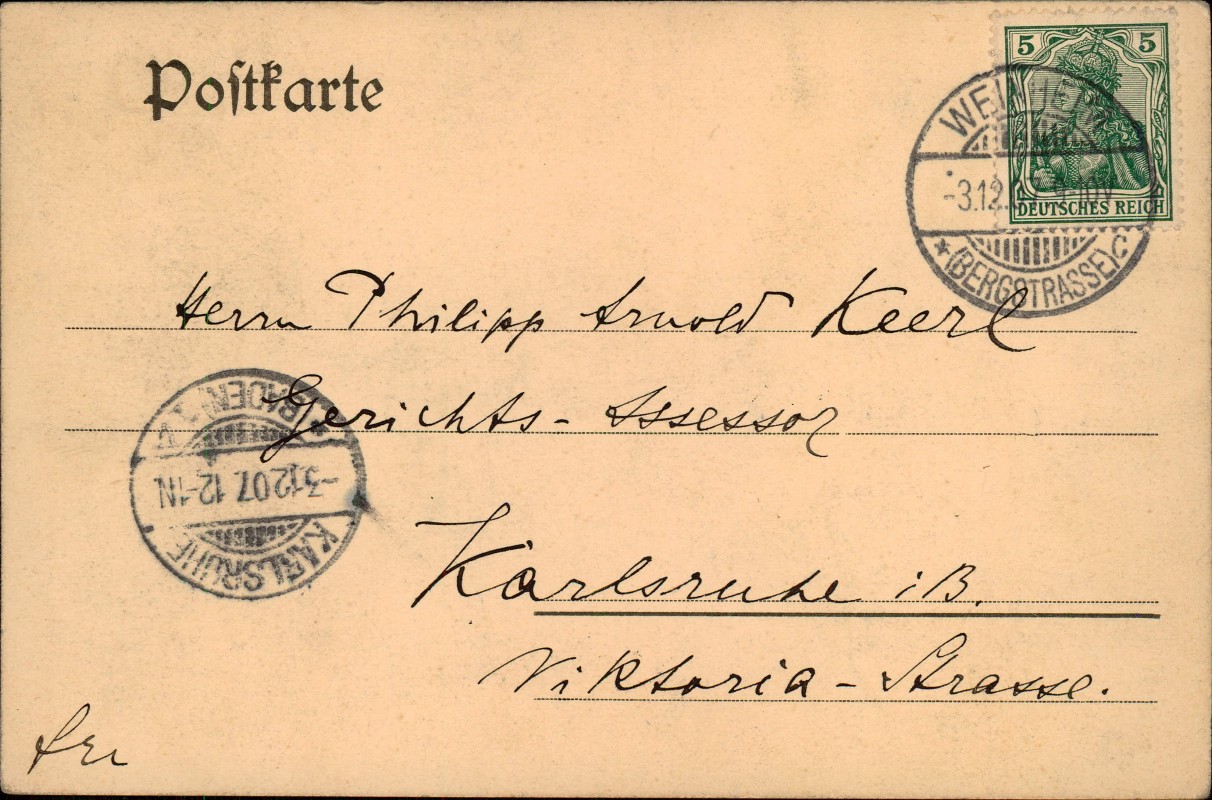 Postkarte
5 5
DEUTSCHES REICH
WEINHEIM
-3.12.07. 9-10V
* (BERGSTRASSE) C
Herrn Philipp Arnold Keerl
Gerichts-Assessor
Karlsruhe i/B.
Viktoria-Strasse.
KARLSRUHE
-3.12.07. 12-1N
* (BADEN) 1.